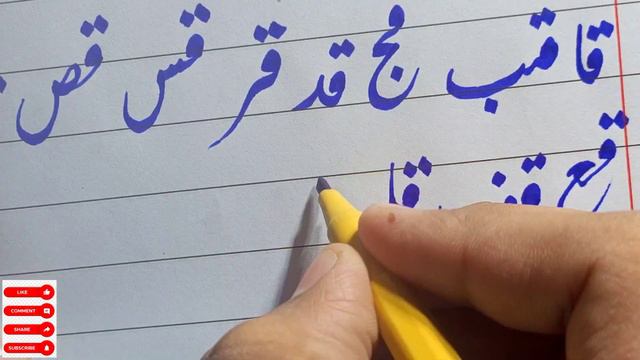 قا قب قج قد قر قس قص
قع قف
LIKE
COMMENT
SHARE
SUBSCRIBE